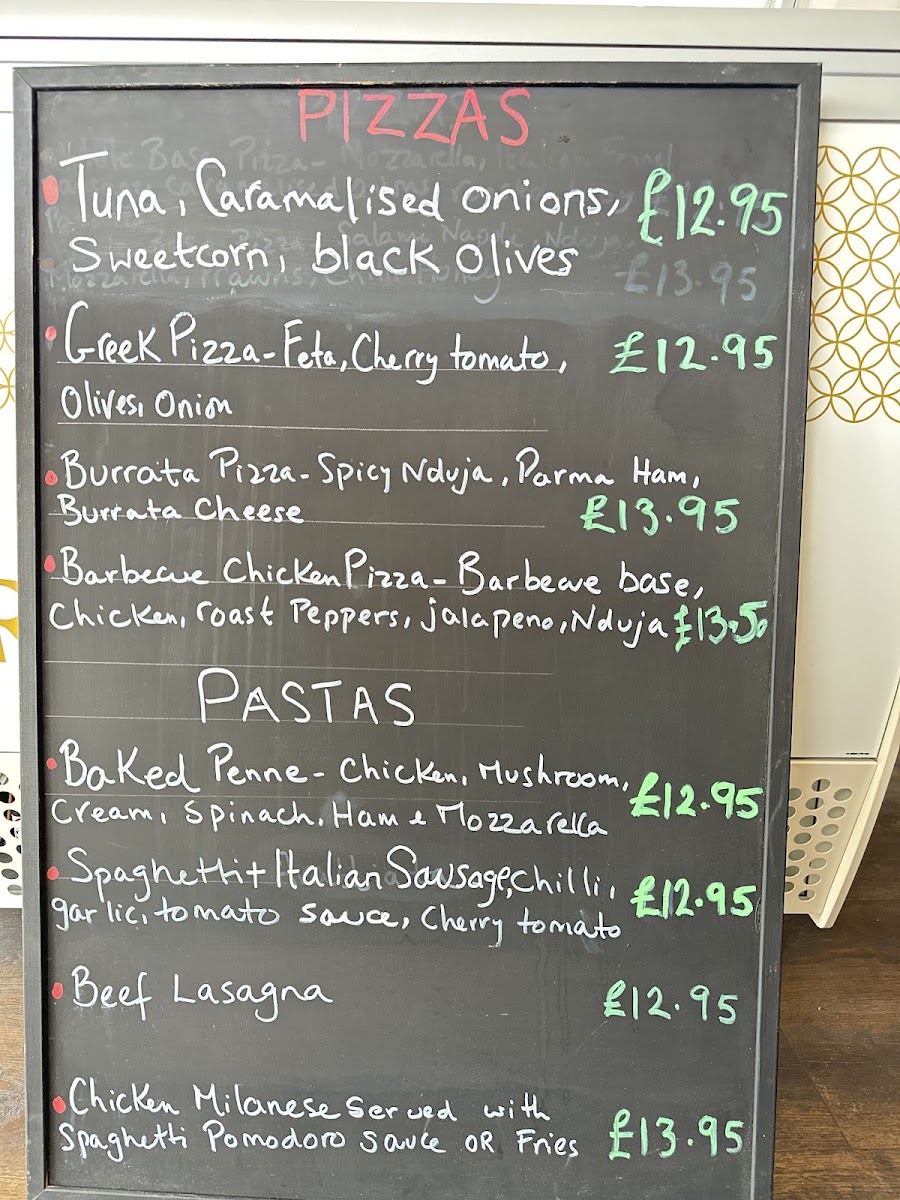 PIZZAS
Tuna, Caramalised onions, £12.95
Sweetcorn, black olives
£13.95
Greek Pizza - Feta, Cherry tomato, £12.95
Olives, Onion
Burrata Pizza - Spicy Nduja, Parma Ham,
Burrata Cheese £13.95
Barbecue Chicken Pizza - Barbecue base,
Chicken, roast Peppers, jalapeno, Nduja £13.50
PASTAS
Baked Penne - Chicken, Mushroom, £12.95
Cream, Spinach, Ham e Mozzarella
Spaghetti + Italian Sausage, chilli, £12.95
garlic, tomato sauce, Cherry tomato
Beef Lasagna £12.95
Chicken Milanese Served with
Spaghetti Pomodoro Sauce OR Fries £13.95